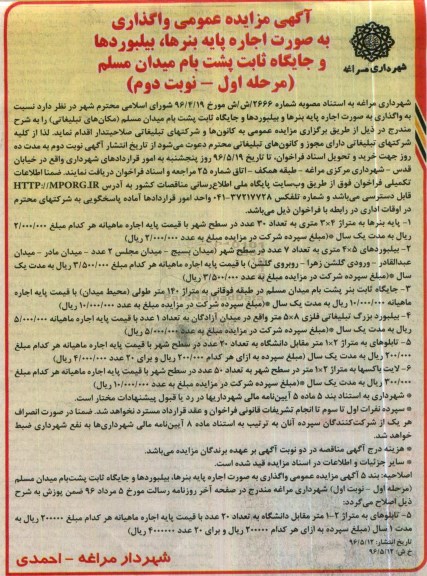 آگهی مزایده عمومی واگذاری
به صورت اجاره پایه بنرها، بیلبوردها
و جایگاه ثابت پشت بام میدان مسلم
(مرحله اول – نوبت دوم)
شهرداری مراغه
شهرداری مراغه به استناد مصوبه شماره ۲۶۶۶/ش/ش مورخ ۹۶/۴/۱۹ شورای اسلامی محترم شهر در نظر دارد نسبت
به واگذاری به صورت اجاره پایه بنرها و بیلبوردها و جایگاه ثابت پشت بام میدان مسلم (مکان‌های تبلیغاتی) را به شرح
مندرج در ذیل از طریق برگزاری مزایده عمومی به کانون‌ها و شرکتهای تبلیغاتی صلاحیتدار اقدام نماید. لذا از کلیه
شرکتهای تبلیغاتی دارای مجوز و کانون‌های تبلیغاتی محترم دعوت می‌شود از تاریخ انتشار آگهی نوبت دوم به مدت ده
روز جهت خرید و تحویل اسناد فراخوان، تا تاریخ ۹۶/۵/۱۹ روز پنجشنبه به امور قراردادهای شهرداری واقع در خیابان
قدس – شهرداری مرکزی مراغه – طبقه همکف – اتاق شماره ۲۵ مراجعه و اسناد فراخوان دریافت نمایند. ضمنا اطلاعات
تکمیلی فراخوان فوق از طریق وب‌سایت پایگاه ملی اطلاع‌رسانی مناقصات کشور به آدرس HTTP://MPORG.IR
قابل دسترسی می‌باشد و شماره تلفکس ۳۷۲۱۷۷۲۸-۰۴۱ واحد امور قراردادها آماده پاسخگویی به شرکتهای محترم
در اوقات اداری در رابطه با فراخوان ذیل می‌باشد.
۱– پایه بنرها به متراژ ۴×۳ متری به تعداد ۲۰ عدد در سطح شهر با قیمت پایه اجاره ماهیانه هر کدام مبلغ ۲/۰۰۰/۰۰۰
ریال به مدت یک سال *(مبلغ سپرده شرکت در مزایده مبلغ به عدد ۲/۰۰۰/۰۰۰ ریال)
۲– بیلبوردهای ۵×۴ متری به تعداد ۷ عدد در سطح شهر (میدان بسیج – میدان مجلس ۲ عدد – میدان مادر – میدان
عبدالقادر – ورودی گلشن زهرا – روبروی گلشن) با قیمت پایه اجاره ماهیانه هر کدام مبلغ ۳/۵۰۰/۰۰۰ ریال به مدت یک
سال *(مبلغ سپرده شرکت در مزایده مبلغ به عدد ۳/۵۰۰/۰۰۰ ریال)
۳– جایگاه ثابت بنر پشت بام میدان مسلم در طبقه فوقانی به متراژ ۱۴۰ متر طولی (محیط میدان) با قیمت پایه اجاره
ماهیانه ۱۰/۰۰۰/۰۰۰ ریال به مدت یک سال *(مبلغ سپرده شرکت در مزایده مبلغ به عدد ۱۰/۰۰۰/۰۰۰ ریال)
۴– بیلبورد بزرگ تبلیغاتی فلزی ۸×۵ متر واقع در میدان آزادگان به تعداد ۱ عدد با قیمت پایه اجاره ماهیانه ۵/۰۰۰/۰۰۰
ریال به مدت یک سال *(مبلغ سپرده شرکت در مزایده مبلغ به عدد ۵/۰۰۰/۰۰۰ ریال)
۵– تابلوهای به متراژ ۲×۱ متر مقابل دانشگاه به تعداد ۲۰ عدد در سطح شهر با قیمت پایه اجاره ماهیانه هر کدام مبلغ
۲۰۰/۰۰۰ ریال به مدت یک سال (مبلغ سپرده به ازای هر کدام ۲۰۰/۰۰۰ ریال و برای ۲۰ عدد ۴/۰۰۰/۰۰۰ ریال)
۶– لایت باکسها به متراژ ۲×۱ متر در سطح شهر به تعداد ۵۰ عدد در سطح شهر با قیمت پایه اجاره ماهیانه هر کدام مبلغ
۳۰۰/۰۰۰ ریال به مدت یک سال *(مبلغ سپرده شرکت در مزایده مبلغ به عدد ۱۰/۰۰۰/۰۰۰ ریال)
* شهرداری به استناد بند ۵ ماده ۵ آیین‌نامه مالی شهرداریها در رد یا قبول پیشنهادات مختار است.
* سپرده نفرات اول تا سوم تا انجام تشریفات قانونی فراخوان و عقد قرارداد مسترد نخواهد شد. ضمنا در صورت انصراف
هر یک از شرکت‌کنندگان سپرده آنان به ترتیب به استناد ماده ۸ آیین‌نامه مالی شهرداری‌ها به نفع شهرداری ضبط
خواهد شد.
* هزینه درج آگهی مناقصه در دو نوبت آگهی بر عهده برندگان مزایده می‌باشد.
* سایر جزئیات و اطلاعات در اسناد مزایده قید شده است.
اصلاحیه: بند ۵ آگهی مزایده عمومی واگذاری به صورت اجاره پایه بنرها، بیلبوردها و جایگاه ثابت پشت‌بام میدان مسلم
(مرحله اول – نوبت اول) شهرداری مراغه مندرج در صفحه آخر روزنامه رسالت مورخ ۵ مرداد ۹۶ ضمن پوزش به شرح
ذیل اصلاح می‌گردد:
۵– تابلوهای به متراژ ۲–۱ متر مقابل دانشگاه به تعداد ۲۰ عدد با قیمت پایه اجاره ماهیانه هر کدام مبلغ ۲۰۰۰۰۰ ریال به
مدت ۱ سال (مبلغ سپرده به ازای هر کدام ۲۰۰۰۰۰ ریال و برای ۲۰ عدد ۴۰۰۰۰۰۰ ریال)
تاریخ انتشار: ۹۶/۵/۱۲
خ ش: ۹۶/۵/۱۲
شهردار مراغه – احمدی